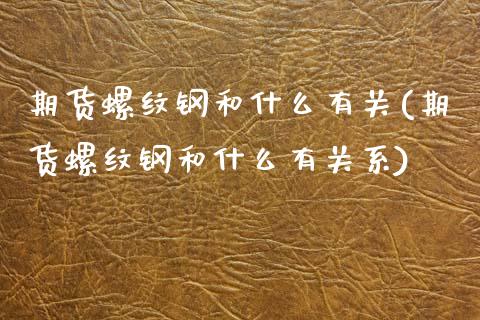 期货螺纹钢和什么有关(期
货螺纹钢和什么有关系)